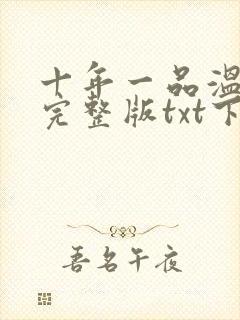 十年一品温
完整版txt下
吾名午夜